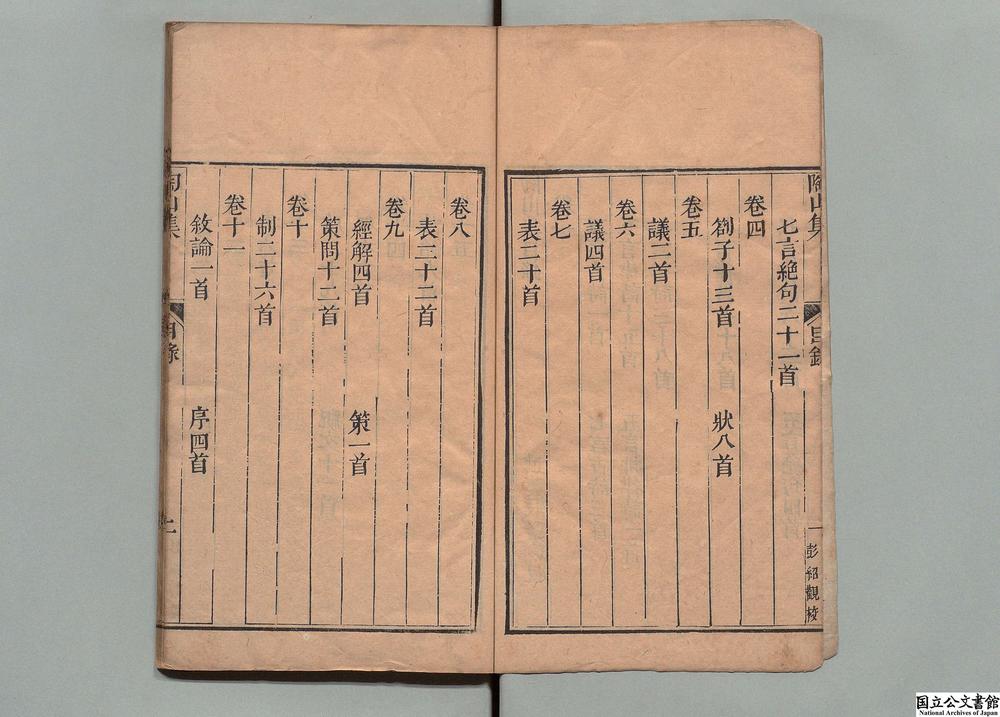 陶山集 目録 一 彭紹觀校
七言絶句二十一首
卷四
劄子十三首 狀八首
卷五
議二首
卷六
議四首
卷七
表二十首
卷八
表三十二首
卷九
經解四首 策一首
策問十二首
卷十
制二十六首
卷十一
敘論一首 序四首
陶山集 目録 二
国立公文書館
National Archives of Japan